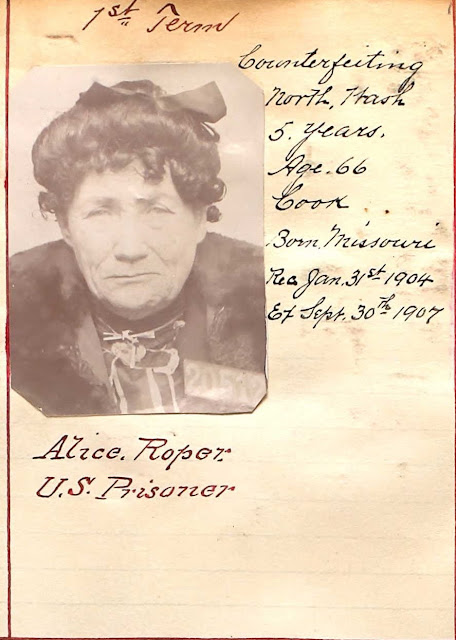 1st Term
Counterfeiting
North, Wash
5. Years.
Age. 66
Cook
Born. Missouri
Rec Jan. 31st 1904
Ex Sept. 30th 1907
Alice. Roper.
U.S. Prisoner